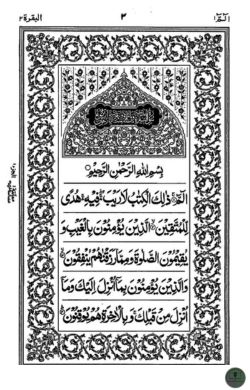 البقرة ٢
٢
الٓمّٓ ١
بِسْمِ اللهِ الرَّحْمٰنِ الرَّحِيْمِ
الٓمّٓ ذٰلِكَ الْكِتٰبُ لَا رَيْبَ فِيْهِ هُدًى
لِّلْمُتَّقِيْنَ الَّذِيْنَ يُؤْمِنُوْنَ بِالْغَيْبِ وَ
يُقِيْمُوْنَ الصَّلٰوةَ وَمِمَّا رَزَقْنٰهُمْ يُنْفِقُوْنَ
وَالَّذِيْنَ يُؤْمِنُوْنَ بِمَآ اُنْزِلَ اِلَيْكَ وَمَآ
اُنْزِلَ مِنْ قَبْلِكَ وَبِالْاٰخِرَةِ هُمْ يُوْقِنُوْنَ